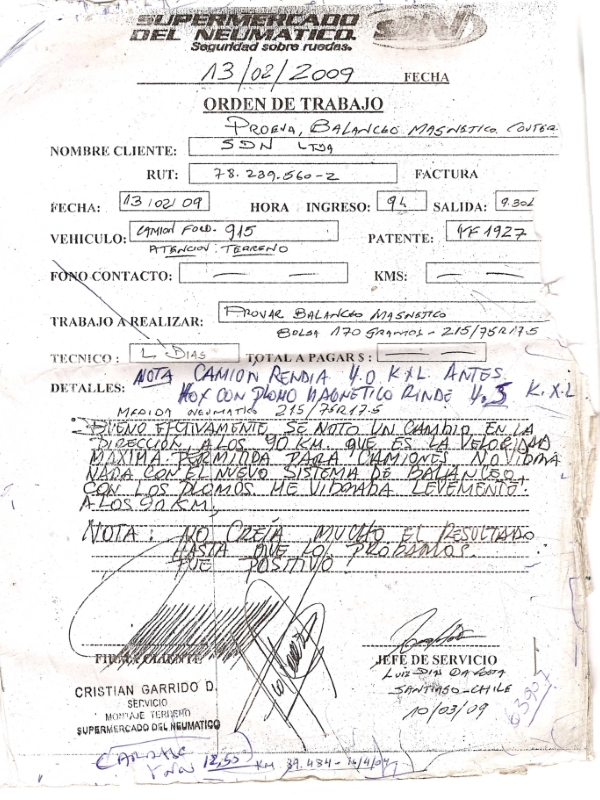 SUPERMERCADO
DEL NEUMATICO.
Seguridad sobre ruedas.
SDN
13/02/2009 FECHA
ORDEN DE TRABAJO
PROEVA, BALANCEO MAGNETICO.
NOMBRE CLIENTE: SDN LTDA
RUT: 78.239.560-2 FACTURA
FECHA: 13/02/09 HORA INGRESO: 9h SALIDA: 9.30h
VEHICULO: CAMION FORD. 915 PATENTE: YF 1927
ATENCION TERRENO
FONO CONTACTO: — — KMS: — —
TRABAJO A REALIZAR: PROVAR BALANCEO MAGNETICO
BOLSA 170 GRAMOS - 215/75R17.5
TECNICO: L DIAS TOTAL A PAGAR $: — —
DETALLES: NOTA CAMION RENDIA 4.0 KXL. ANTES.
HOY CON PLOMO MAGNETICO RINDE 4.5 K.X.L
MEDIDA NEUMATICO 215/75R17.5
BUENO EFECTIVAMENTE SE NOTO UN CAMBIO EN LA
DIRECCION A LOS 90 KM. QUE ES LA VELORIDAD
MAXIMA PERMITIDA PARA CAMIONES NO VIBRA
NADA CON EL NUEVO SISTEMA DE BALANCEO,
CON LOS PLOMOS ME VIBRABA LEVEMENTE.
A LOS 90 KM,
NOTA: NO CREIA MUCHO EL RESULTADO
HASTA QUE LO PROBAMOS.
FUE POSITIVO!
FIRMA CLIENTE JEFE DE SERVICIO
CRISTIAN GARRIDO D.
SERVICIO
MONTAJE TERRENO
SUPERMERCADO DEL NEUMATICO
LUIZ DIAS DA COSTA
SANTIAGO-CHILE
10/03/09
KM 39.434